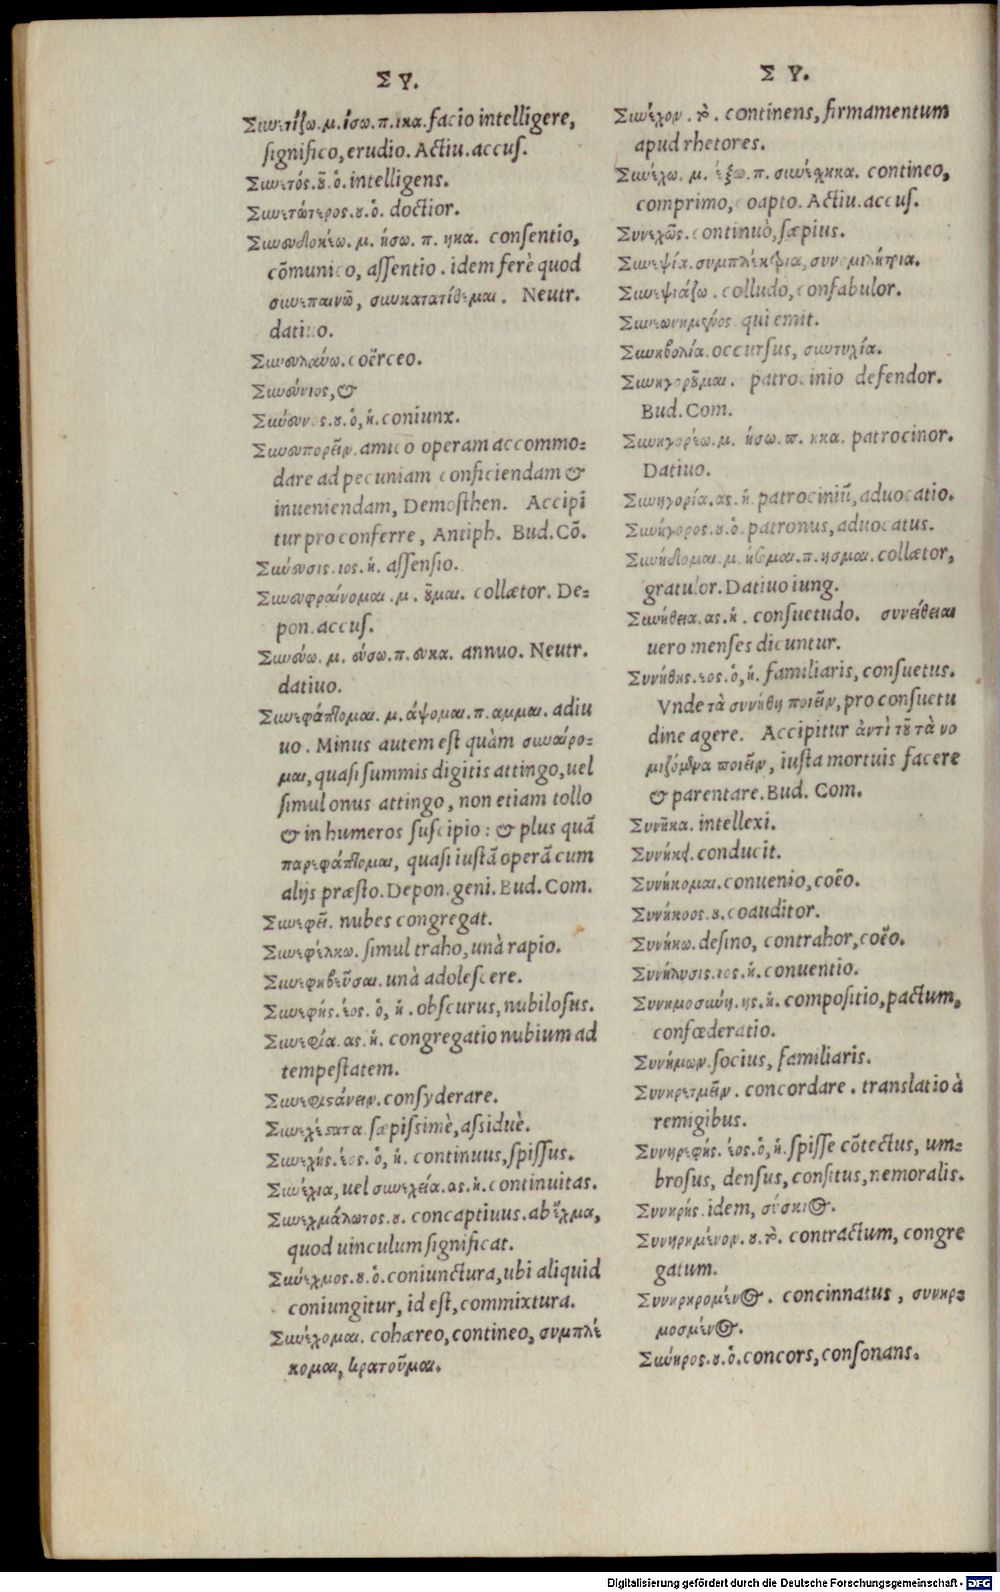 Σ Υ.
Συνετίζω. μ. ίσω. π. ικα. facio intelligere,
ſignifico, erudio. Actiu. accuſ.
Συνετός. οῦ. ὁ. intelligens.
Συνετώτερος. ου. ὁ. doctior.
Συνευδοκέω. μ. ήσω. π. ηκα. conſentio,
cõmunico, aſſentio. idem ferè quod
συνεπαινῶ, συγκατατίθεμαι. Neutr.
datiuo.
Συνευλαύω. coërceo.
Συνεύνιος, &
Σύνευνος. ου. ὁ, ἡ. coniunx.
Συνευπορεῖν. amico operam accommo-
dare ad pecuniam conficiendam &
inueniendam, Demoſthen. Accipi
tur pro conferre, Antiph. Bud. Cõ.
Σύνευσις. ιος. ἡ. aſſenſio.
Συνευφραίνομαι. μ. οῦμαι. collætor. De-
pon. accuſ.
Συνεύω. μ. εύσω. π. ευκα. annuo. Neutr.
datiuo.
Συνεφάπτομαι. μ. άψομαι. π. αμμαι. adiu
uo. Minus autem eſt quàm συναίρο-
μαι, quaſi ſummis digitis attingo, uel
ſimul onus attingo, non etiam tollo
& in humeros ſuſcipio: & plus quã
παρεφάπτομαι, quaſi iuſtã operã cum
alijs præſto. Depon. geni. Bud. Com.
Συνεφεῖ. nubes congregat.
Συνεφέλκω. ſimul traho, unà rapio.
Συνεφηβεῦσαι. unà adoleſcere.
Συνεφής. έος. ὁ, ἡ. obſcurus, nubiloſus.
Συνεφία. ας. ἡ. congregatio nubium ad
tempeſtatem.
Συνεφιστάνειν. conſyderare.
Συνεχέστατα. ſæpiſsimè, aſsiduè.
Συνεχής. έος. ὁ, ἡ. continuus, ſpiſſus.
Συνέχια, uel συνεχεία. ας. ἡ. continuitas.
Συνεχμάλωτος. ου. concaptiuus. ab ἔχμα,
quod uinculum ſignificat.
Σύνεχμος. ου. ὁ. coniunctura, ubi aliquid
coniungitur, id eſt, commixtura.
Συνέχομαι. cohæreo, contineo, συμπλέ
κομαι, κρατοῦμαι.
Σ Υ.
Συνέχον. τὸ. continens, firmamentum
apud rhetores.
Συνέχω. μ. έξω. π. συνέχηκα. contineo,
comprimo, coapto. Actiu. accuſ.
Συνεχῶς. continuò, ſæpius.
Συνεψία. συμπλέκτρια, συνομιλήτρια.
Συνεψιάζω. colludo, confabulor.
Συνεωνημένος qui emit.
Συνηβολία. occurſus, συντυχία.
Συνηγοροῦμαι. patrocinio defendor.
Bud. Com.
Συνηγορέω. μ. ήσω. π. ηκα. patrocinor.
Datiuo.
Συνηγορία. ας. ἡ. patrociniũ, aduocatio.
Συνήγορος. ου. ὁ. patronus, aduocatus.
Συνήδομαι. μ. ήσομαι. π. ησμαι. collætor,
gratulor. Datiuo iung.
Συνήθεια. ας. ἡ. conſuetudo. συνείθειαι
uero menſes dicuntur.
Συνήθης. εος. ὁ, ἡ. familiaris, conſuetus.
Vnde τὰ συνήθη ποιεῖν, pro conſuetu
dine agere. Accipitur ἀντὶ τοῦ τὰ νο
μιζόμενα ποιεῖν, iuſta mortuis facere
& parentare. Bud. Com.
Συνῆκα. intellexi.
Συνήκει. conducit.
Συνήκομαι. conuenio, coëo.
Συνήκοος. ου. coauditor.
Συνήκω. deſino, contrahor, coëo.
Συνήλυσις. ιος. ἡ. conuentio.
Συνημοσύνη. ης. ἡ. compoſitio, pactum,
confœderatio.
Συνήμων. ſocius, familiaris.
Συνηρετμεῖν. concordare. translatio à
remigibus.
Συνηρεφής. έος. ὁ, ἡ. ſpiſſe cõtectus, um-
broſus, denſus, conſitus, nemoralis.
Συνηρής. idem, σύσκιος.
Συνηρημένον. ου. τὸ. contractum, congre
gatum.
Συνηρηρομένος. concinnatus, συνηρ-
μοσμένος.
Σύνηρος. ου. ὁ. concors, conſonans.
Digitalisierung gefördert durch die Deutsche Forschungsgemeinschaft - DFG